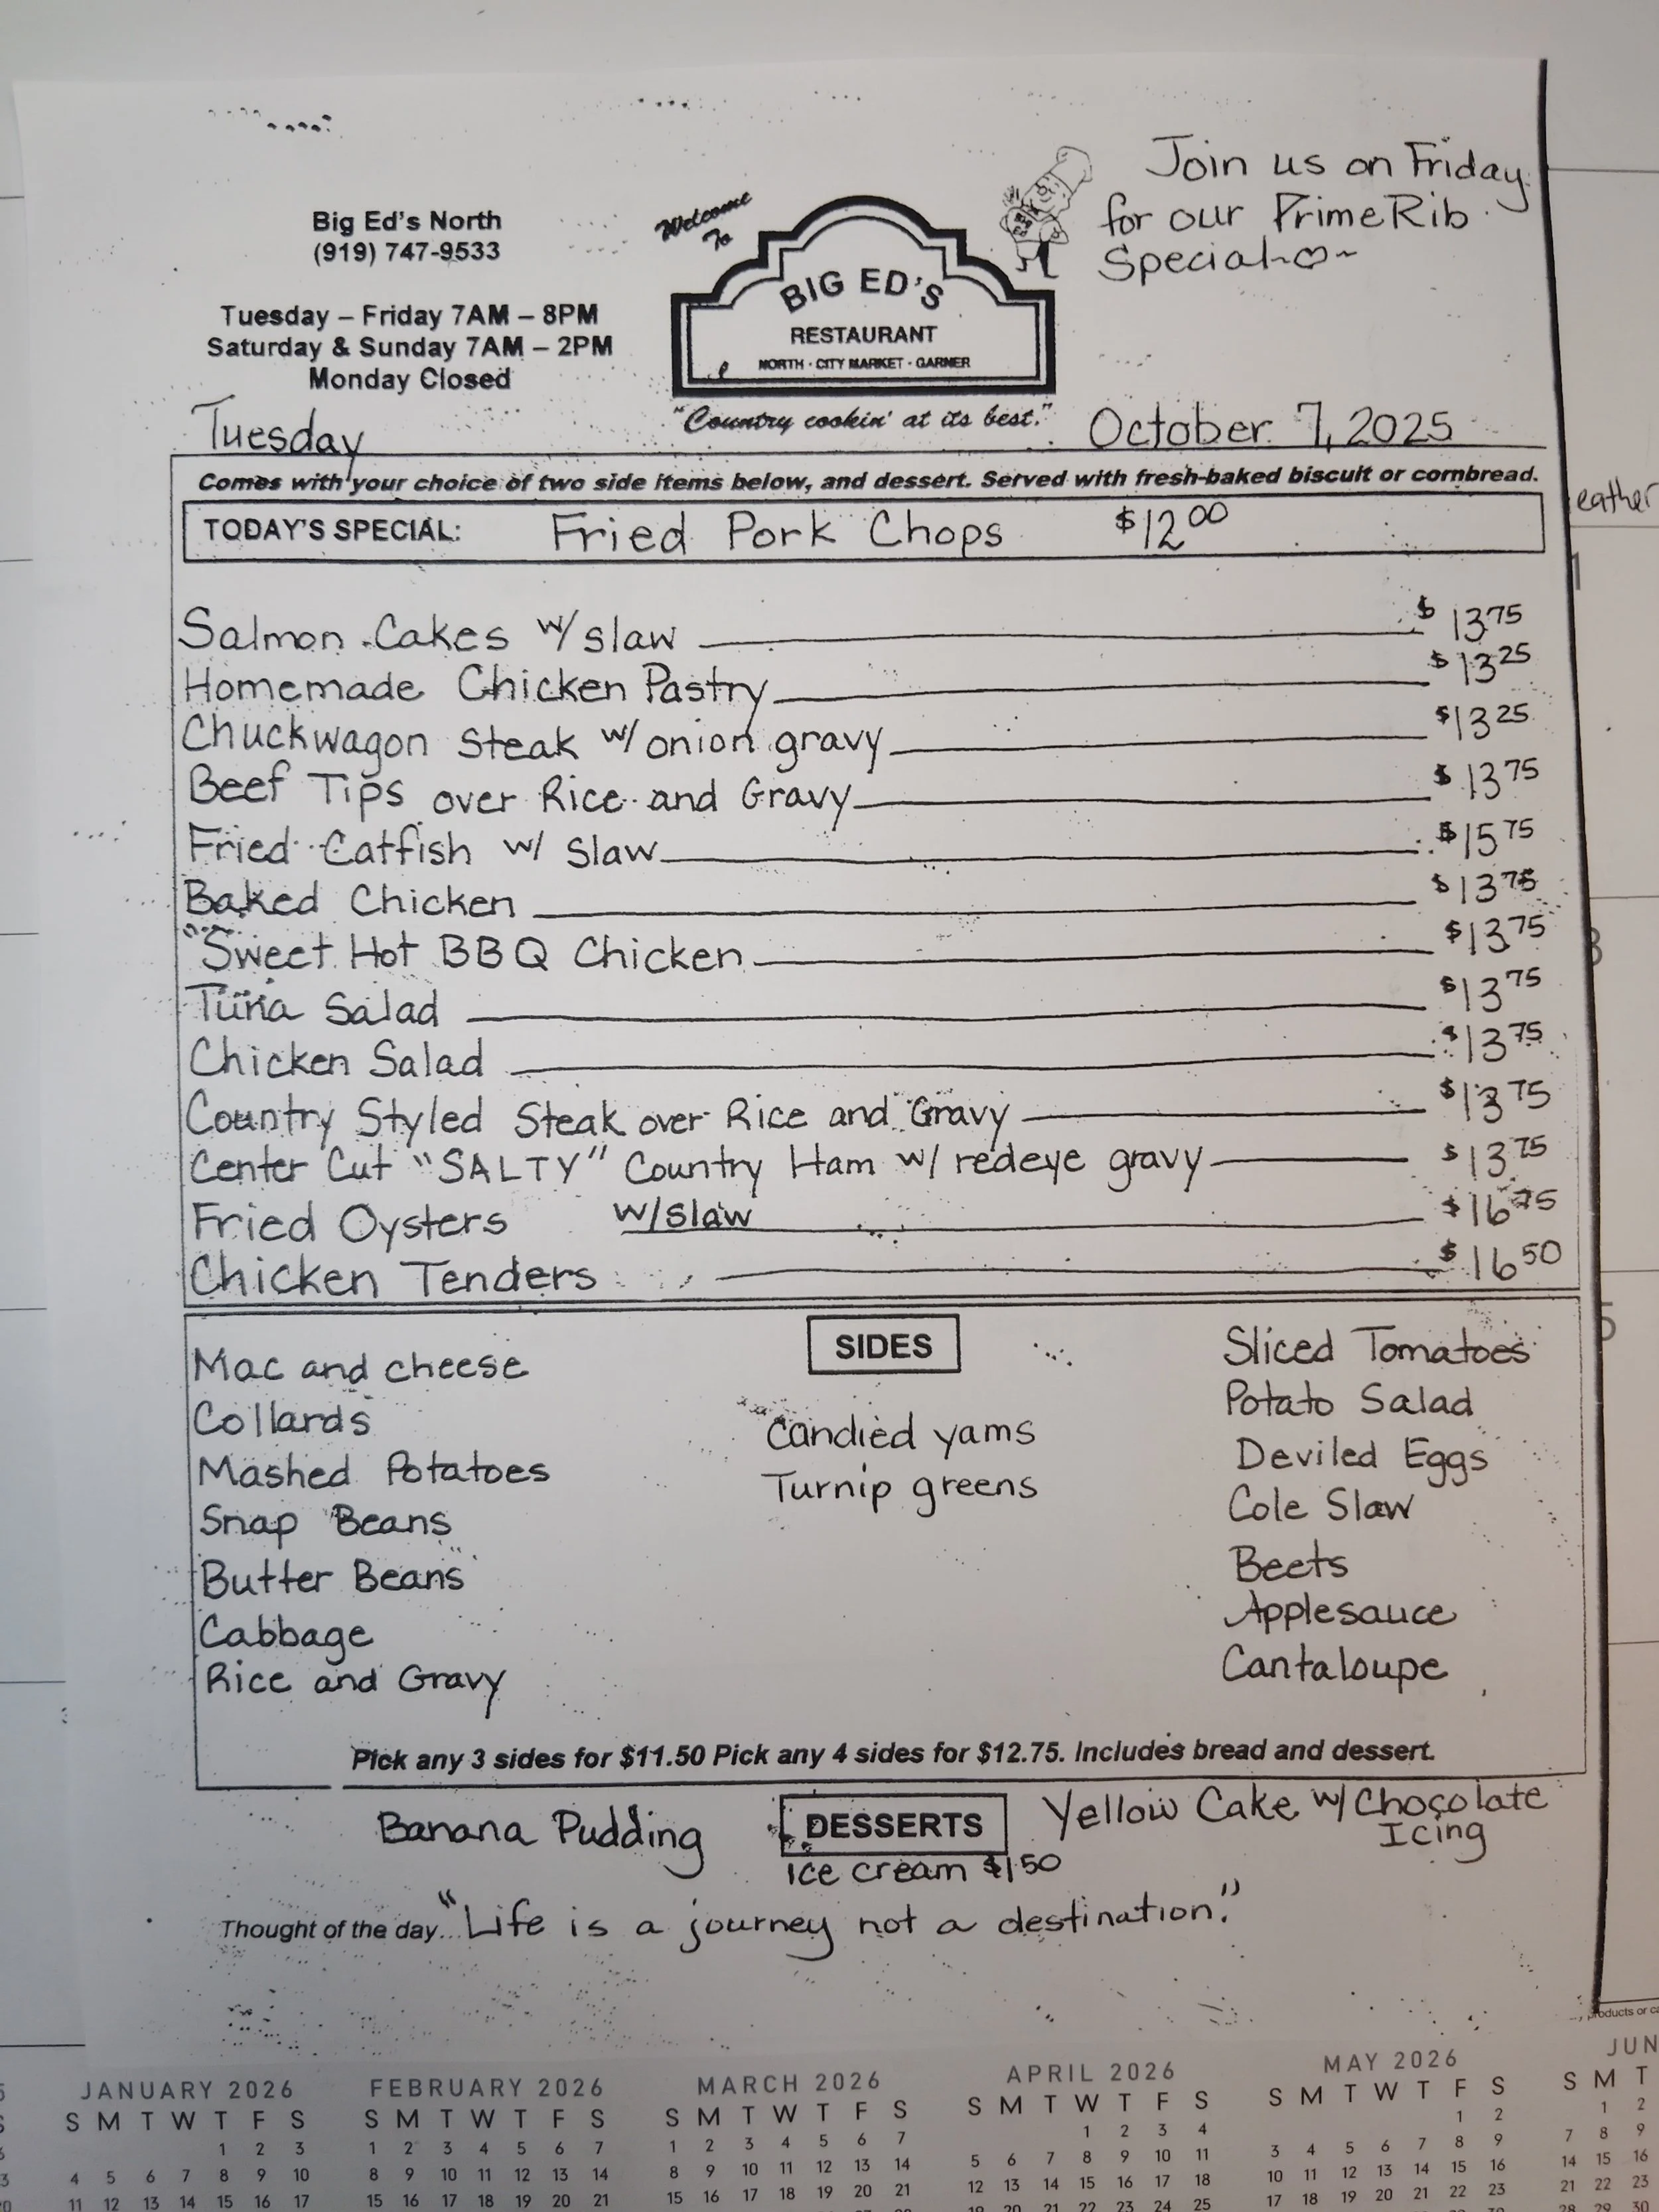 Join us on Friday
for our Prime Rib
Special
Big Ed's North
(919) 747-9533
Tuesday – Friday 7AM – 8PM
Saturday & Sunday 7AM – 2PM
Monday Closed
Welcome
To
BIG ED'S
RESTAURANT
NORTH · CITY MARKET · GARNER
"Country cookin' at its best."
Tuesday
October 7, 2025
Comes with your choice of two side items below, and dessert. Served with fresh-baked biscuit or cornbread.
TODAY'S SPECIAL: Fried Pork Chops $12 00
Salmon Cakes w/ slaw $13 75
Homemade Chicken Pastry $13 25
Chuckwagon Steak w/ onion gravy $13 25
Beef Tips over Rice and Gravy $13 75
Fried Catfish w/ Slaw $15 75
Baked Chicken $13 75
Sweet Hot BBQ Chicken $13 75
Tuna Salad $13 75
Chicken Salad $13 75
Country Styled Steak over Rice and Gravy $13 75
Center Cut "SALTY" Country Ham w/ redeye gravy $13 75
Fried Oysters w/slaw $16 75
Chicken Tenders $16 50
SIDES
Mac and cheese
Collards
Mashed Potatoes
Snap Beans
Butter Beans
Cabbage
Rice and Gravy
Candied yams
Turnip greens
Sliced Tomatoes
Potato Salad
Deviled Eggs
Cole Slaw
Beets
Applesauce
Cantaloupe
Pick any 3 sides for $11.50 Pick any 4 sides for $12.75. Includes bread and dessert.
DESSERTS
Banana Pudding
Yellow Cake w/ Chocolate
Icing
Ice cream $1.50
Thought of the day... "Life is a journey not a destination."
eather
oducts or
JANUARY 2026 FEBRUARY 2026 MARCH 2026 APRIL 2026 MAY 2026 JUN
S M T W T F S S M T W T F S S M T W T F S S M T W T F S S M T W T F S S M T
1 2 3 1 2 3 4 5 6 7 1 2 3 4 5 6 7 1 2 3 4 1 2 1 2
4 5 6 7 8 9 10 8 9 10 11 12 13 14 8 9 10 11 12 13 14 5 6 7 8 9 10 11 3 4 5 6 7 8 9 7 8 9
11 12 13 14 15 16 17 15 16 17 18 19 20 21 15 16 17 18 19 20 21 12 13 14 15 16 17 18 10 11 12 13 14 15 16 14 15 16
21 22 23 24 25 17 18 19 20 21 22 23 21 22 23